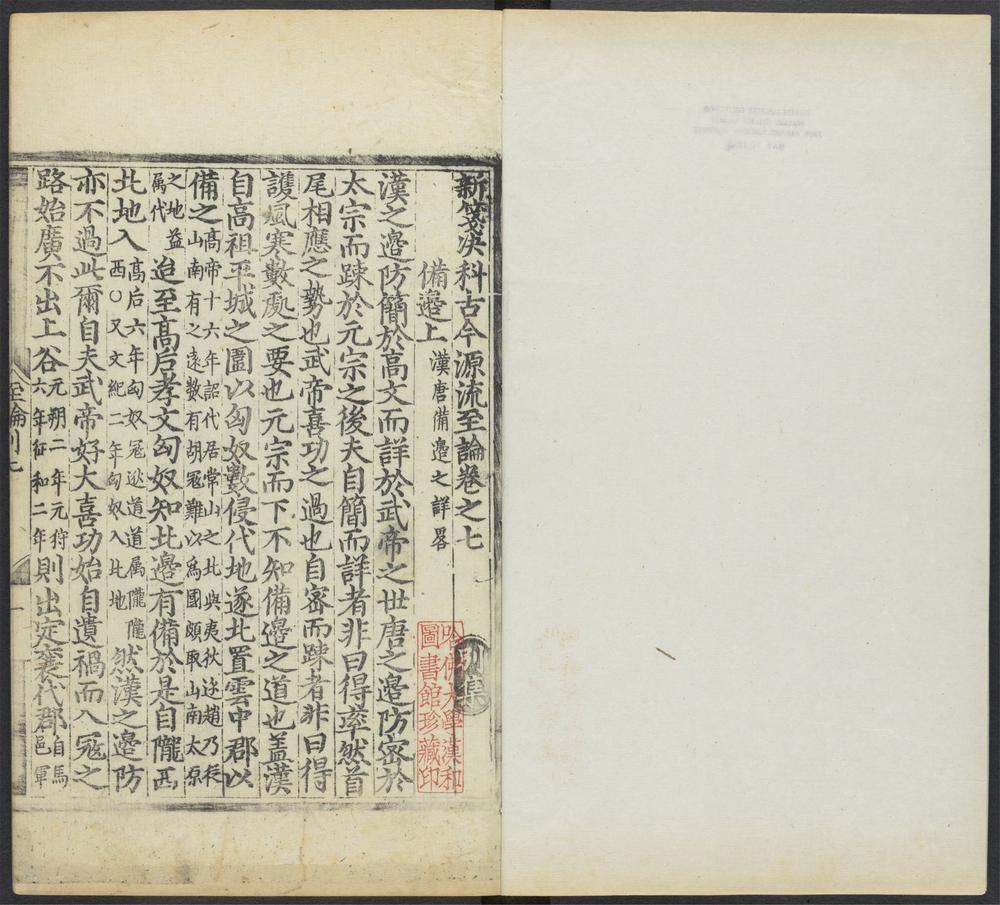 新箋决科古今源流至論卷之七
別集
備邉上 漢唐備邉之詳畧
漢之邉防簡於高文而詳於武帝之世唐之邉防密於
太宗而踈於元宗之後夫自簡而詳者非曰得率然首
尾相應之勢也武帝喜功之過也自密而踈者非曰得
䕶風寒數處之要也元宗而下不知備邉之道也盖漢
自高祖平城之圍以匈奴數侵代地遂北置雲中郡以
備之高帝十六年詔代居常山之北與夷狄边趙乃従
山南有之遠数有胡冦難以為國頗取山南太原
之地益
属代迨至髙后孝文匈奴知北邉有備於是自隴西
北地入高后六年匈奴冦狄道道属隴
西○又文紀二年匈奴入北地然漢之邉防
亦不過此爾自夫武帝好大喜功始自遺禍而入冦之
路始廣不出上谷元朔二年元狩
六年征和二年則出定襄代郡自馬
邑軍
至論別七
哈佛大學漢和
圖書館珍藏印